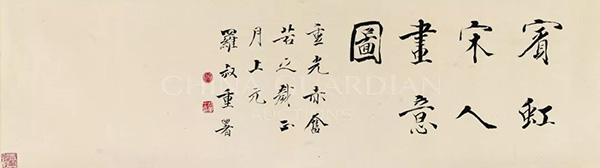 賓虹
宋人
畫意
圖
重光赤奮
若之歲正
月上元
羅叔重署
CHINA GUARDIAN
AUCTIONS